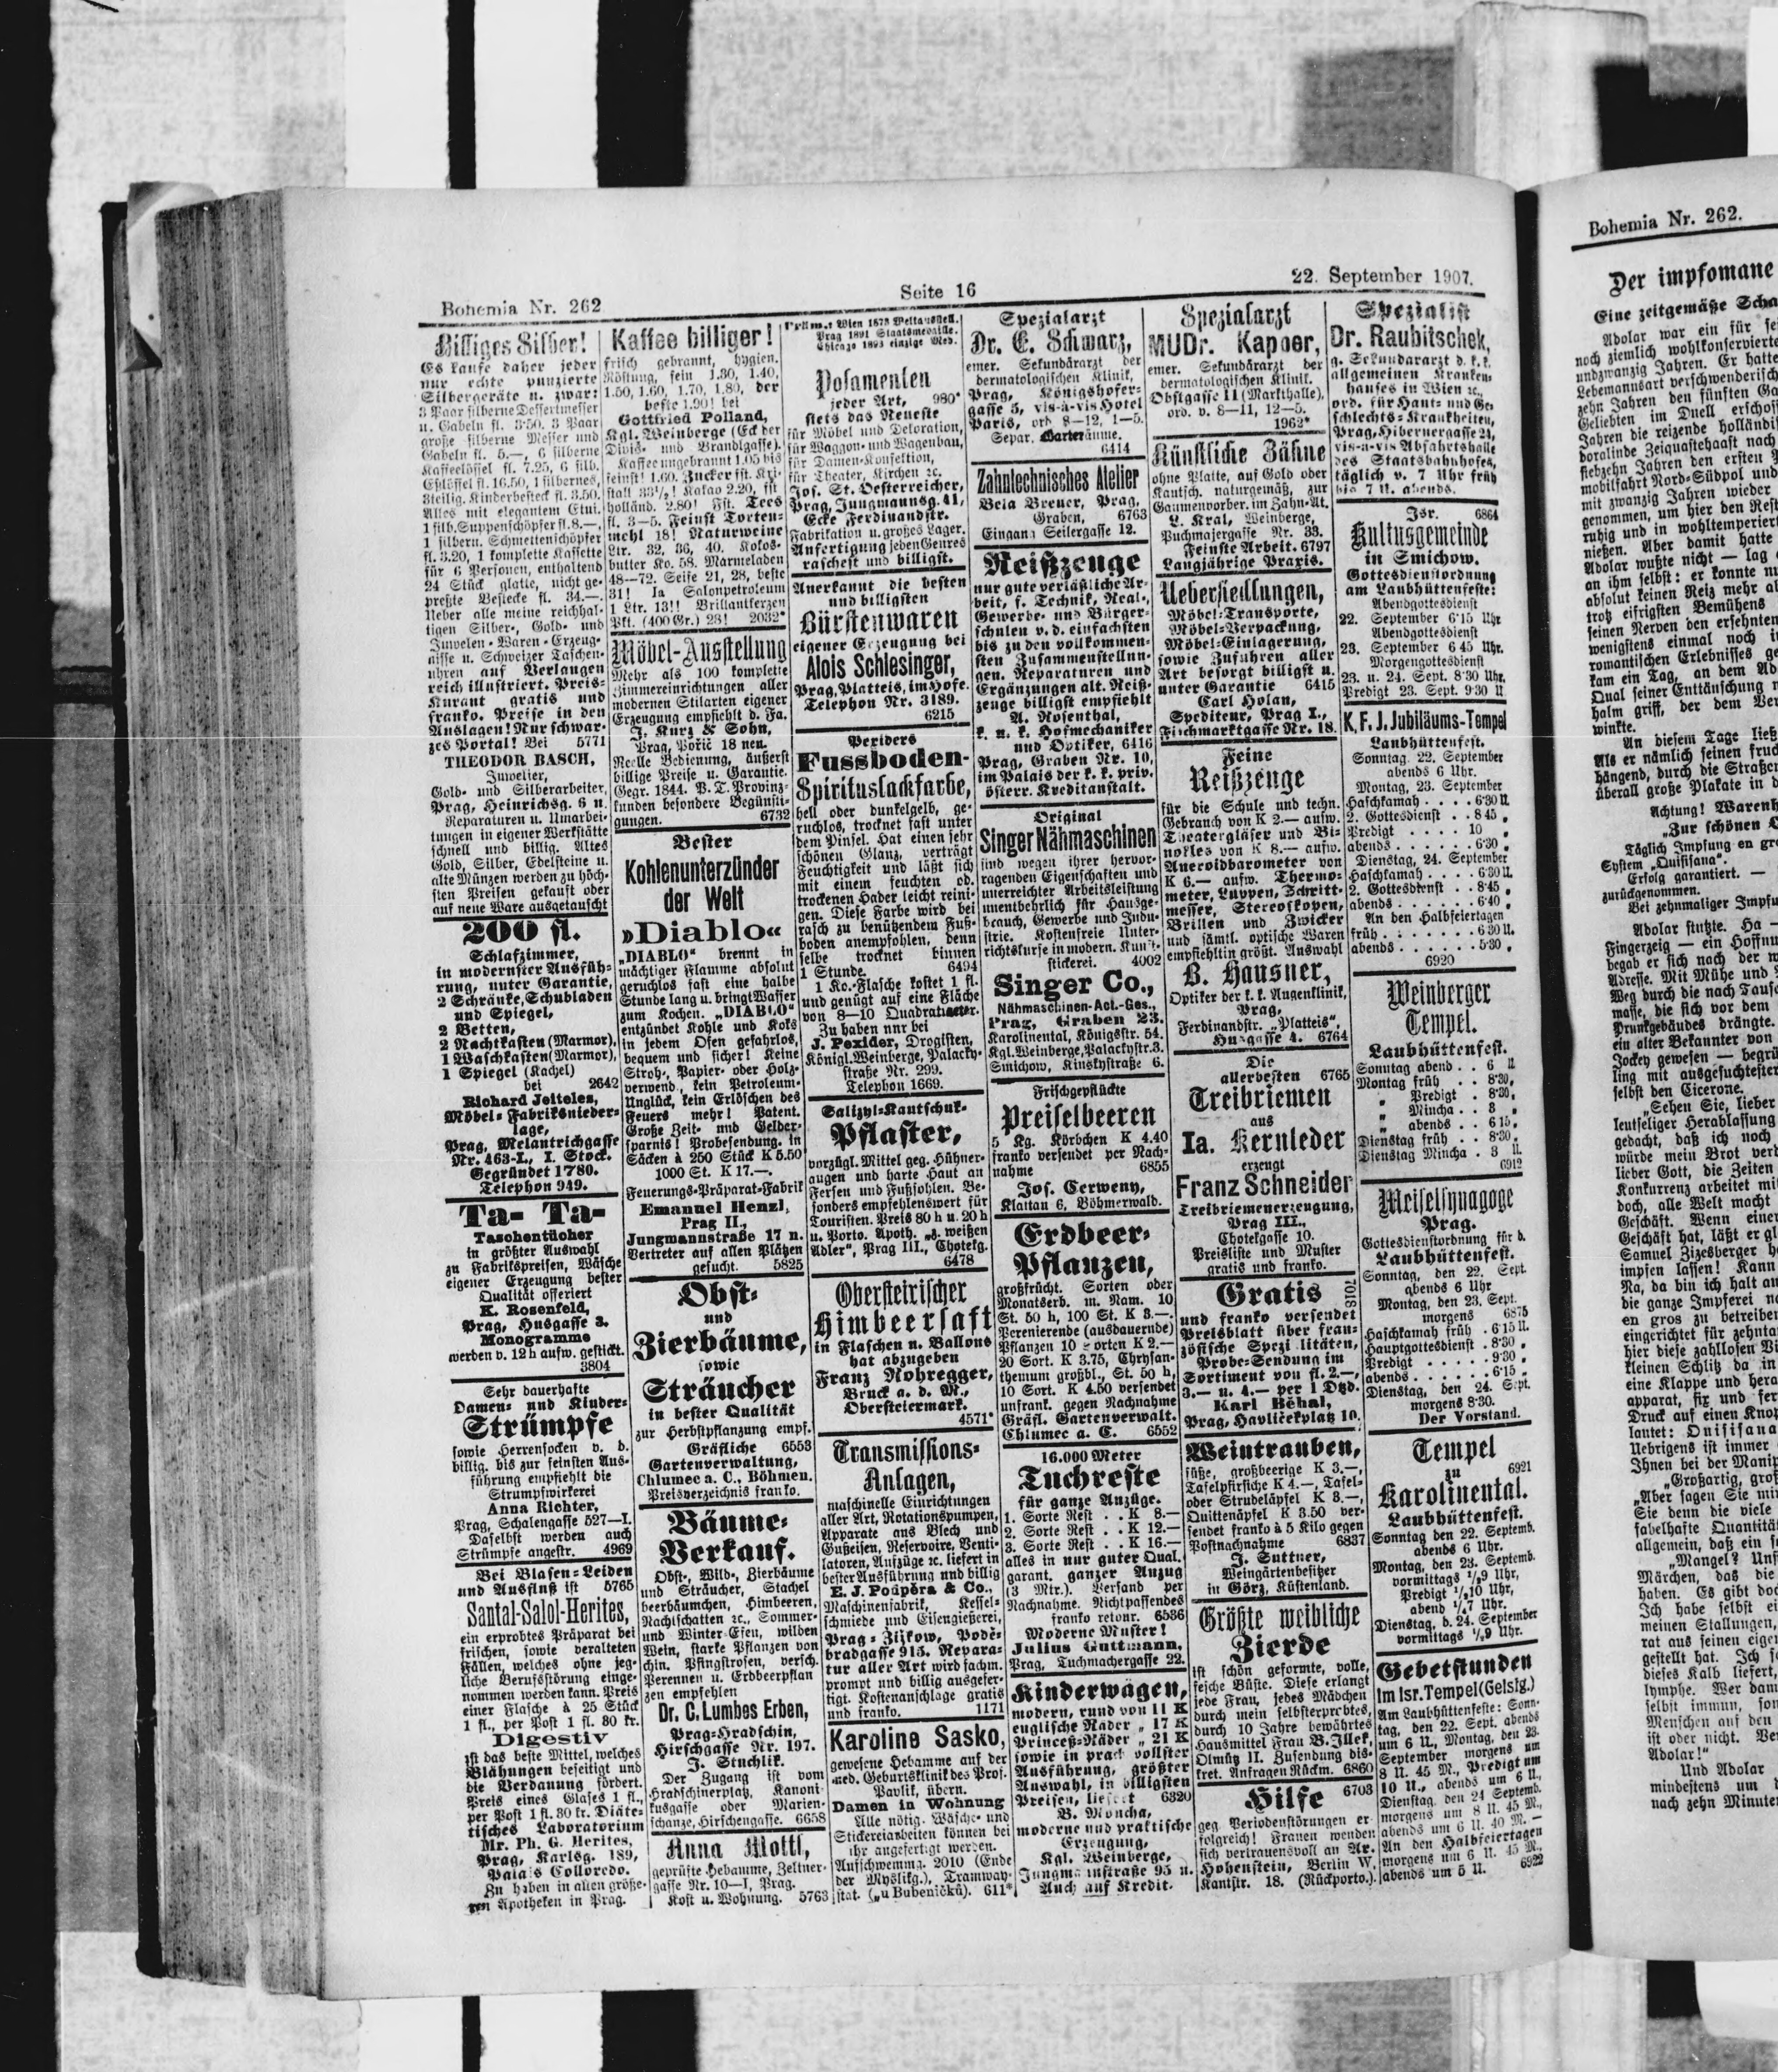 Bohemia Nr. 262
Seite 16
22. September 1907.
Billiges Silber!
Es kaufe daher jeder
nur echte punzierte
Silbergeräte u. zwar:
3 Paar silberne Dessertmesser
u. Gabeln fl. 3·50, 3 Paar
große silberne Messer und
Gabeln fl. 5.—, 6 silberne
Kaffeelöffel fl. 7.25, 6 silb.
Eßlöffel fl. 16.50, 1 silbernes,
3teilig. Kinderbesteck fl. 3.50.
Alles mit elegantem Etui.
1 silb. Suppenschöpfer fl. 8.—,
1 silbern. Schmettenschöpfer
fl. 3.20, 1 komplette Kassette
für 6 Personen, enthaltend
24 Stück glatte, nicht ge-
preßte Bestecke fl. 34.—.
Ueber alle meine reichhal-
tigen Silber-, Gold- und
Juwelen-Waren-Erzeug-
nisse u. Schweizer Taschen-
uhren auf Verlangen
reich illustriert. Preis-
Kurant gratis und
franko. Preise in den
Auslagen! Nur schwar-
zes Portal! Bei 5771
THEODOR BASCH,
Juwelier,
Gold- und Silberarbeiter,
Prag, Heinrichsg. 6 n.
Reparaturen u. Umarbei-
tungen in eigener Werkstätte
schnell und billig. Altes
Gold, Silber, Edelsteine u.
alte Münzen werden zu höch-
sten Preisen gekauft oder
auf neue Ware ausgetauscht
200 fl.
Schlafzimmer,
in modernster Ausfüh-
rung, unter Garantie,
2 Schränke, Schubladen
und Spiegel,
2 Betten,
2 Nachtkasten (Marmor),
1 Waschkasten (Marmor),
1 Spiegel (Kachel)
bei 2642
Richard Jeiteles,
Möbel-Fabriksnieder-
lage,
Prag, Melantrichgasse
Nr. 463-I., I. Stock.
Gegründet 1780.
Telephon 949.
Ta- Ta-
Taschentücher
in größter Auswahl
zu Fabrikspreisen, Wäsche
eigener Erzeugung bester
Qualität offeriert
K. Rosenfeld,
Prag, Husgasse 3.
Monogramme
werden v. 12 h aufw. gestickt.
3804
Sehr dauerhafte
Damen- und Kinder-
Strümpfe
sowie Herrensocken v. d.
billig. bis zur feinsten Aus-
führung empfiehlt die
Strumpfwirkerei
Anna Richter,
Prag, Schalengasse 527—I.
Daselbst werden auch
Strümpfe angestr. 4969
Bei Blasen-Leiden
und Ausfluß ist 5765
Santal-Salol-Herites,
ein erprobtes Präparat bei
frischen, sowie veralteten
Fällen, welches ohne jeg-
liche Berufsstörung einge-
nommen werden kann. Preis
einer Flasche à 25 Stück
1 fl., per Post 1 fl. 30 kr.
Digestiv
ist das beste Mittel, welches
Blähungen beseitigt und
die Verdauung fördert.
Preis eines Glases 1 fl.,
per Post 1 fl. 30 kr. Diäte-
tisches Laboratorium
Mr. Ph. G. Herites,
Prag, Karlsg. 189,
Palais Colloredo.
Zu haben in allen größe-
ren Apotheken in Prag.
Kaffee billiger!
frisch gebrannt, hygien.
Röstung, fein 1.30, 1.40,
1.50, 1.60, 1.70, 1.80, der
beste 1.90! bei
Gottfried Polland,
Kgl. Weinberge (Eck der
Divis- und Brandlgasse).
Kaffee ungebrannt 1.05 bis
feinst! 1.60. Zucker fst. Kri-
stall 33½! Kakao 2.20, fst
holländ. 2.80! Fst. Tees
fl. 3—5. Feinst Torten-
mehl 18! Naturweine
Ltr. 32, 36, 40. Kokos-
butter Ko. 58. Marmeladen
48—72. Seife 21, 28, beste
31! Ia Salonpetroleum
1 Ltr. 13!! Brillantkerzen
Pkt. (400 Gr.) 28! 2032*
Möbel-Ausstellung
Mehr als 100 komplette
Zimmereinrichtungen aller
modernen Stilarten eigener
Erzeugung empfiehlt d. Fa.
J. Kurz & Sohn,
Prag, Pořič 18 neu.
Reelle Bedienung, äußerst
billige Preise u. Garantie.
Gegr. 1844. P. T. Provinz-
kunden besondere Begünsti-
gungen. 6732
Bester
Kohlenunterzünder
der Welt
»Diablo«
„DIABLO“ brennt in
mächtiger Flamme absolut
geruchlos fast eine halbe
Stunde lang u. bringt Wasser
zum Kochen. „DIABLO“
entzündet Kohle und Koks
in jedem Ofen gefahrlos,
bequem und sicher! Keine
Stroh-, Papier- oder Holz-
verwend., kein Petroleum-
Unglück, kein Erlöschen des
Feuers mehr! Patent.
Große Zeit- und Gelder-
sparnis! Probesendung. in
Säcken à 250 Stück K 5.50
1000 St. K 17.—.
Feuerungs-Präparat-Fabrik
Emanuel Henzl,
Prag II.,
Jungmannstraße 17 n.
Vertreter auf allen Plätzen
gesucht. 5825
Obst-
und
Zierbäume,
sowie
Sträucher
in bester Qualität
zur Herbstpflanzung empf.
Gräfliche 6553
Gartenverwaltung,
Chlumec a. C., Böhmen.
Preisverzeichnis franko.
Bäume-
Verkauf.
Obst-, Wild-, Zierbäume
und Sträucher, Stachel
beerbäumchen, Himbeeren,
Nachtschatten ec., Sommer-
und Winter-Efeu, wilden
Wein, starke Pflanzen von
chin. Pfingstrosen, versch.
Perennen u. Erdbeerpflan
zen empfehlen
Dr. C. Lumbes Erben,
Prag-Hradschin,
Hirschgasse Nr. 197.
J. Stuchlik.
Der Zugang ist vom
Hradschinerplatz, Kanoni-
kusgasse oder Marien-
schanze, Hirschengasse. 6658
Anna Mottl,
geprüfte Hebamme, Zeltner-
gasse Nr. 10—I, Prag.
Kost u. Wohnung. 5763
Präm.: Wien 1873 Weltausstell.
Prag 1891 Staatsmedaille.
Chicago 1893 einzige Med.
Posamenten
jeder Art, 980*
stets das Neueste
für Möbel und Dekoration,
für Waggon- und Wagenbau,
für Damen-Konfektion,
für Theater, Kirchen ec.
Jos. St. Oesterreicher,
Prag, Jungmannsg. 41,
Ecke Ferdinandstr.
Fabrikation u. großes Lager.
Anfertigung jeden Genres
raschest und billigst.
Anerkannt die besten
und billigsten
Bürstenwaren
eigener Erzeugung bei
Alois Schlesinger,
Prag, Platteis, im Hofe.
Telephon Nr. 3189.
6215
Pexiders
Fussboden-
Spirituslackfarbe,
hell oder dunkelgelb, ge-
ruchlos, trocknet fast unter
dem Pinsel. Hat einen sehr
schönen Glanz, verträgt
Feuchtigkeit und läßt sich
mit einem feuchten od.
trockenen Hader leicht reini-
gen. Diese Farbe wird bei
rasch zu benützendem Fuß-
boden anempfohlen, denn
selbe trocknet binnen
1 Stunde. 6494
1 Ko.-Flasche kostet 1 fl.
und genügt auf eine Fläche
von 8—10 Quadratmeter.
Zu haben nur bei
J. Pexider, Drogisten,
Königl. Weinberge, Palacky-
straße Nr. 299.
Telephon 1669.
Salizyl-Kautschuk-
Pflaster,
vorzügl. Mittel geg. Hühner-
augen und harte Haut an
Fersen und Fußsohlen. Be-
sonders empfehlenswert für
Touristen. Preis 80 h u. 20 h
u. Porto. Apoth. „z. weißen
Adler“, Prag III., Chotekg.
6478
Obersteirischer
Himbeersaft
in Flaschen u. Ballons
hat abzugeben
Franz Nohregger,
Bruck a. d. M.,
Obersteiermark.
4571*
Transmissions-
Anlagen,
maschinelle Einrichtungen
aller Art, Rotationspumpen,
Apparate aus Blech und
Gußeisen, Reservoire, Venti-
latoren, Aufzüge ec. liefert in
bester Ausführung und billig
E. J. Podpěra & Co.,
Maschinenfabrik, Kessel-
schmiede und Eisengießerei,
Prag-Žižkow, Podě-
bradgasse 915. Repara-
tur aller Art wird fachm.
prompt und billig ausgefer-
tigt. Kostenanschlage gratis
und franko. 1171
Karoline Sasko,
gewesene Hebamme auf der
med. Geburtsklinik des Prof.
Pavlik, übern.
Damen in Wohnung
Alle nötig. Wäsche- und
Stickereiarbeiten können bei
ihr angefertigt werden.
Aufschwemmg. 2010 (Ende
der Myslikg.), Tramway-
stat. („u Bubeničků). 611*
Spezialarzt
Dr. E. Schwarz,
emer. Sekundärarzt der
dermatologischen Klinik,
Prag, Königshofer-
gasse 5, vis-à-vis Hotel
Paris, ord 8—12, 1—5.
Separ. Warteräume.
6414
Zahntechnisches Atelier
Bela Breuer, Prag,
Graben, 6763
Eingang Seilergasse 12.
Reißzeuge
nur gute verläßliche Ar-
beit, f. Technik, Real-,
Gewerbe- und Bürger-
schulen v. d. einfachsten
bis zu den vollkommen-
sten Zusammenstellun-
gen. Reparaturen und
Ergänzungen alt. Reiß-
zeuge billigst empfiehlt
A. Rosenthal,
k. u. k. Hofmechaniker
und Optiker, 6416
Prag, Graben Nr. 10,
im Palais der k. k. priv.
österr. Kreditanstalt.
Original
Singer Nähmaschinen
sind wegen ihrer hervor-
ragenden Eigenschaften und
unerreichter Arbeitsleistung
unentbehrlich für Hausge-
brauch, Gewerbe und Indu-
strie. Kostenfreie Unter-
richtskurse in modern. Kunst-
stickerei. 4002
Singer Co.,
Nähmaschinen-Act.-Ges.,
Prag, Graben 23.
Karolinental, Königsstr. 54.
Kgl. Weinberge, Palackystr. 3.
Smichow, Kinskystraße 6.
Frischgepflückte
Preiselbeeren
5 Kg. Körbchen K 4.40
franko versendet per Nach-
nahme 6855
Jos. Cerweny,
Klattau 6, Böhmerwald.
Erdbeer-
Pflanzen,
großfrücht. Sorten oder
Monatserb. m. Nam. 10
St. 50 h, 100 St. K 3.—.
Perenierende (ausdauernde)
Pflanzen 10 Sorten K 2.—
20 Sort. K 3.75, Chrysan-
themum großbl., St. 50 h,
10 Sort. K 4.50 versendet
unfrank. gegen Nachnahme
Gräfl. Gartenverwalt.
Chlumec a. C. 6552
16.000 Meter
Tuchreste
für ganze Anzüge.
1. Sorte Rest . . K 8.—
2. Sorte Rest . . K 12.—
3. Sorte Rest . . K 16.—
alles in nur guter Qual.
garant. ganzer Anzug
(3 Mtr.). Versand per
Nachnahme. Nichtpassendes
franko retour. 6536
Moderne Muster!
Julius Guttmann,
Prag, Tuchmachergasse 22.
Kinderwägen,
modern, rund von 11 K
englische Räder „ 17 K
Princeß-Räder „ 21 K
sowie in prachtvollster
Ausführung, größter
Auswahl, in billigsten
Preisen, liefert 6320
B. Moucha,
moderne und praktische
Erzeugung,
Kgl. Weinberge,
Jungmannstraße 95 n.
Auch auf Kredit.
Spezialarzt
MUDr. Kapper,
emer. Sekundärarzt der
dermatologischen Klinik.
Obstgasse 11 (Markthalle).
ord. v. 8—11, 12—5.
1962*
Künstliche Zähne
ohne Platte, auf Gold oder
Kautsch. naturgemäß, zur
Gaumenvorber. im Zahn-At.
L. Kral, Weinberge,
Puchmajergasse Nr. 33.
Feinste Arbeit. 6797
Langjährige Praxis.
Uebersiedlungen,
Möbel-Transporte,
Möbel-Verpackung,
Möbel-Einlagerung,
sowie Zufuhren aller
Art besorgt billigst u.
unter Garantie 6415
Carl Holan,
Spediteur, Prag I.,
Fischmarktgasse Nr. 18.
Feine
Reißzeuge
für die Schule und techn.
Gebrauch von K 2.— aufw.
Theatergläser und Bi-
nokles von K 8.— aufw.
Aneroidbarometer von
K 6.— aufw. Thermo-
meter, Luppen, Schritt-
messer, Stereoskopen,
Brillen und Zwicker
und sämtl. optische Waren
empfiehlt in größt. Auswahl
B. Hausner,
Optiker der k. k. Augenklinik,
Prag,
Ferdinandstr. „Platteis“,
Husgasse 4. 6764
Die
allerbesten 6765
Treibriemen
aus
Ia. Kernleder
erzeugt
Franz Schneider
Treibriemenerzeugung,
Prag III.,
Chotekgasse 10.
Preisliste und Muster
gratis und franko.
Gratis 7018
und franko versendet
Preisblatt über fran-
zösische Spezialitäten,
Probe-Sendung im
Sortiment von fl. 2.—,
3.— u. 4.— per 1 Dtzd.
Karl Běhal,
Prag, Havlíčekplatz 10.
Weintrauben,
süße, großbeerige K 3.—,
Tafelpfirsiche K 4.—, Tafel-
oder Strudeläpfel K 3.—,
Quittenäpfel K 3.50 ver-
sendet franko à 5 Kilo gegen
Postnachnahme 6837
J. Suttner,
Weingärtenbesitzer
in Görz, Küstenland.
Größte weibliche
Zierde
ist schön geformte, volle,
fesche Büste. Diese erlangt
jede Frau, jedes Mädchen
durch mein selbsterprobtes,
durch 10 Jahre bewährtes
Hausmittel Frau B. Illek,
Olmütz II. Zusendung dis-
kret. Anfragen Rückm. 6860
Hilfe 6703
geg. Periodenstörungen er-
folgreich! Frauen wenden
sich vertrauensvoll an Ar.
Hohenstein, Berlin W.
Kantstr. 18. (Rückporto.).
Spezialist
Dr. Raubitschek,
g. Sekundararzt d. k. k.
allgemeinen Kranken-
hauses in Wien ec.,
ord. für Haut- und Ge-
schlechts-Krankheiten,
Prag, Hibernergasse 24,
vis-à-vis Abfahrtshalle
des Staatsbahnhofes,
täglich v. 7 Uhr früh
bis 7 U. abends.
Isr. 6864
Kultusgemeinde
in Smichow.
Gottesdienstordnung
am Laubhüttenfeste:
Abendgottesdienst
22. September 6·15 Uhr
Abendgottesdienst
23. September 6 45 Uhr.
Morgengottesdienst
23. u. 24. Sept. 8·30 Uhr.
Predigt 23. Sept. 9·30 U
K. F. J. Jubiläums-Tempel
Laubhüttenfest.
Sonntag. 22. September
abends 6 Uhr.
Montag, 23. September
Haschkamah . . . . 6·30 U.
2. Gottesdienst . . 8 45 „
Predigt . . . . 10 „
abends . . . . . . 6·30 „
Dienstag, 24. September
Haschkamah . . . . 6·30 U.
2. Gottesdienst . . 8·45 „
abends . . . . . . 6·40 „
An den Halbfeiertagen
früh . . . . . . . 6 30 U.
abends . . . . . . 5·30 „
6920
Weinberger
Tempel.
Laubhüttenfest.
Sonntag abend . . 6 U
Montag früh . . 8·30 „
„ Predigt . 8·30 „
„ Mincha . . 3 „
„ abends . . 6 15 „
Dienstag früh . . 8·30 „
Dienstag Mincha . 3 U.
6912
Meiselsynagoge
Prag.
Gottesdienstordnung für d.
Laubhüttenfest.
Sonntag, den 22. Sept.
abends 6 Uhr
Montag, den 23. Sept.
morgens 6875
Haschkamah früh . 6·15 U.
Hauptgottesdienst . 8·30 „
Predigt . . . . . 9·30 „
abends . . . . . . 6·15 „
Dienstag, den 24. Sept.
morgens 8·30.
Der Vorstand.
Tempel
zu 6921
Karolinental.
Laubhüttenfest.
Sonntag den 22. Septemb.
abends 6 Uhr.
Montag, den 23. Septemb.
vormittags ½9 Uhr,
Predigt ½10 Uhr,
abend ½7 Uhr.
Dienstag, d. 24. September
vormittags ½9 Uhr.
Gebetstunden
im Isr. Tempel (Geistg.)
Am Laubhüttenfeste: Sonn-
tag, den 22. Sept. abends
um 6 U., Montag, den 23.
September morgens um
8 U. 45 M., Predigt um
10 U., abends um 6 U.,
Dienstag, den 24 Septemb.
morgens um 8 U. 45 M.,
abends um 6 U. 40 M. —
An den Halbfeiertagen
morgens um 6 U. 45 M.,
abends um 5 U. 6922
Bohemia Nr. 262.
Der impfomane
Eine zeitgemäße
Adolar war ein für
noch ziemlich wohlkonservierte
undzwanzig Jahren. Er hatte
Lebemannsart verschwenderisch
zehn Jahren den fünften
Geliebten im Duell
Jahren die reizende
doralinde Zeiquastehaast nach
siebzehn Jahren den ersten
mobilfahrt Nord-Südpol und
mit zwanzig Jahren wieder
genommen, um hier den Rest
ruhig und in wohltemperiert
nießen. Aber damit hatte
Adolar wußte nicht — lag
an ihm selbst: er konnte
absolut keinen Reiz mehr
troß eifrigsten Bemühens
seinen Nerven den ersehnten
wenigstens einmal noch
romantischen Erlebnisses
kam ein Tag, an dem
Qual seiner Enttäuschung
halm griff, der dem
winkte.
An diesem Tage ließ
Als er nämlich seinen
hängend, durch die Straßen
überall große Plakate in
Achtung!
„Zur schönen
Täglich Impfung en
System „Quisisana“.
Erfolg garantiert. —
zurückgenommen.
Bei zehnmaliger
Adolar stutzte. Ha —
Fingerzeig — ein
begab er sich nach der
Adresse. Mit Mühe und
Weg durch die nach
masse, die sich vor dem
Prunkgebäudes drängte.
ein alter Bekannter von
Jockey gewesen —
ling mit ausgesuchtester
selbst den Cicerone.
„Sehen Sie, lieber
leutseliger Herablassung
gedacht, daß ich noch
würde mein Brot
lieber Gott, die Zeiten
Konkurrenz arbeitet
doch, alle Welt macht
Geschäft. Wenn einer
Geschäft hat, läßt er
Samuel Zizesberger
impfen lassen! Kann
Na, da bin ich halt
die ganze Impferei
en gros zu betreiben
eingerichtet für
hier diese zahllosen
kleinen Schlitz da in
eine Klappe und
apparat, fix und
Druck auf einen
lautet: Quisisana
Uebrigens ist immer
Ihnen bei der
„Großartig,
„Aber sagen Sie
Sie denn die viele
fabelhafte
allgemein, daß ein
„Mangel?
Märchen, das die
haben. Es gibt
Ich habe selbst
meinen Stallungen,
rat aus seinen
gestellt hat. Ich
dieses Kalb liefert,
lymphe. Wer
selbst immun,
Menschen auf den
ist oder nicht.
Adolar!“
Und Adolar
mindestens um
nach zehn Minuten